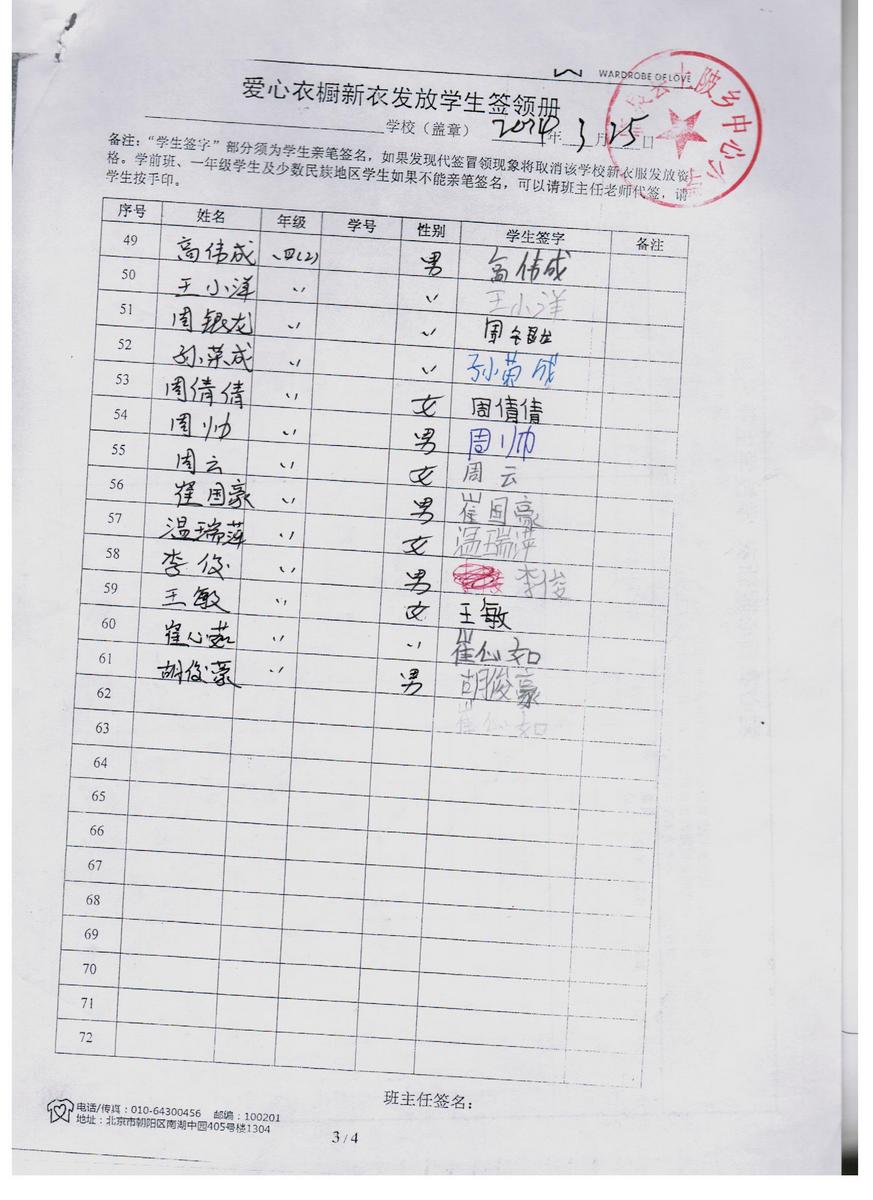 WARDROBE OF LOVE
爱心衣橱新衣发放学生签领册
学校（盖章） 2014年 3月25日
上陂乡中心小
备注：“学生签字”部分须为学生亲笔签名，如果发现代签冒领现象将取消该学校新衣服发放资
格。学前班、一年级学生及少数民族地区学生如果不能亲笔签名，可以请班主任老师代签，请
学生按手印。
序号 姓名 年级 学号 性别 学生签字 备注
49 高伟成 四(2) 男 高伟成
50 王小洋 〃 〃 王小洋
51 周银龙 〃 〃 周
52 孙荣成 〃 〃 孙荣成
53 周倩倩 〃 女 周倩倩
54 周帅 〃 男 周帅
55 周云 〃 女 周云
56 崔国豪 〃 男 崔国豪
57 温瑞萍 〃 女 温瑞萍
58 李俊 〃 男 李俊
59 王敏 〃 女 王敏
60 崔心茹 〃 〃 崔心如
61 胡俊豪 〃 男 胡俊豪
62 崔心如
63
64
65
66
67
68
69
70
71
72
班主任签名：
电话/传真：010-64300456 邮编：100201
地址：北京市朝阳区南湖中园405号楼1304
3 / 4